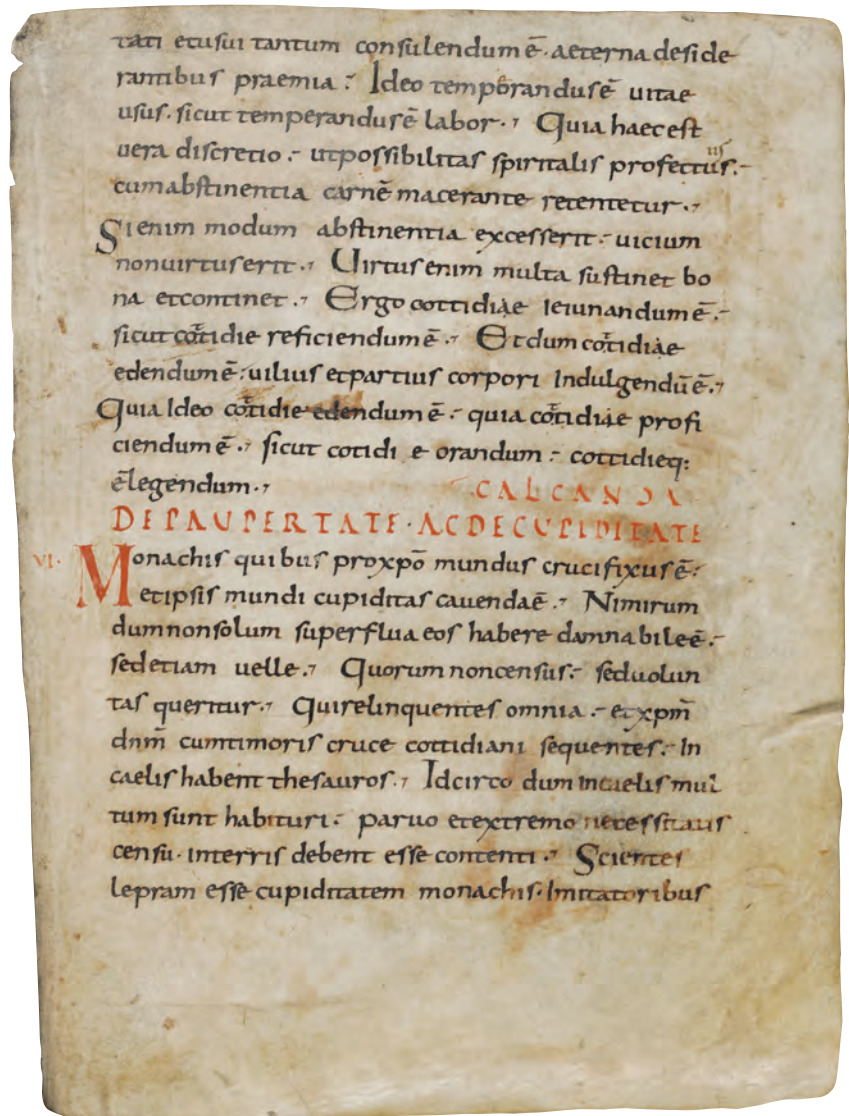 tati etusui tantum consulendum ē· aeterna deside
rantibus praemia : Ideo temporandus ē uitae
usus· sicut temperandus ē labor ·, Quia haec est
uera discretio :- utpossibilitas spiritalis profectius :-
cumabstinentia carnē macerante retentetur ·,
Si enim modum abstinentia excesserit :- uicium
nonuirtus erit ·, Uirtus enim multa sustinet bo
na etcontinet ·, Ergo cottidiae ieiunandum ē :-
sicut cōtidie reficiendum ē ·, Et dum cōtidiae
edendum ē : uilius etpartius corpori Indulgendū ē ·,
Quia Ideo cōtidie edendum ē :- quia cōtidiae profi
ciendum ē ·, sicut cotidi e orandum :- cottidieq:
ē legendum ·,
CALCANDA
DE PAUPERTATE · AC DE CUPIDITATE
VI· Monachis quibus proxpō mundus crucifixus ē :
Metipsis mundi cupiditas cauenda ē ·, Nimirum
dumnonsolum superflua eos habere damnabile ē :-
sed etiam uelle ·, Quorum noncensus :- seduolun
tas queritur ·, Quirelinquentes omnia :- et xpm̄
dnm̄ cumtimoris cruce cottidiani sequentes :- In
caelis habent thesauros ·, Idcirco dum Incaelis mul
tum sunt habituri :- paruo etextremo necessitatis
censu· interris debent esse contenti ·, Scientes
lepram esse cupiditatem monachis· Imitatoribus